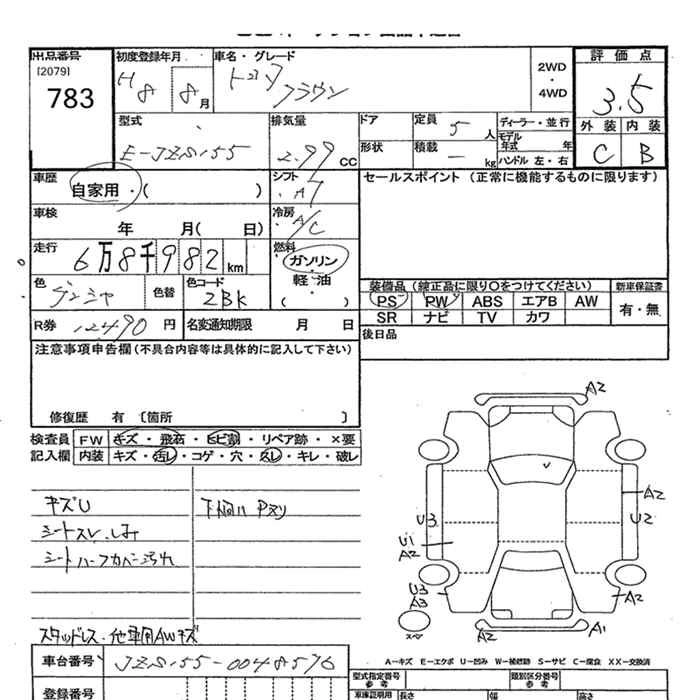 出品番号
[2079]
783
初度登録年月
H 8 8月
車名・グレード
トヨタ
クラウン
2WD
・
4WD
評価点
3.5
外装 内装
C B
型式
E-JZS155
排気量
2.99 CC
ドア
形状
定員 5 人
積載 — kg
ディーラー・並行
モデル年式 年
ハンドル 左・右
車歴
自家用・( )
シフト
A7
セールスポイント (正常に機能するものに限ります)
車検
年 月( 日)
冷房
A/C
走行
6万8千982km
燃料
ガソリン
・
軽油
( )
色
色替
色コード
2BK
装備品 (純正品に限り○をつけてください)
PS PW ABS エアB AW
SR ナビ TV カワ
新車保証書
有・無
R券 12490 円
名変通知期限 月 日
後日品
注意事項申告欄(不具合内容等は具体的に記入して下さい)
修復歴 有 〔箇所 〕
検査員記入欄
FW キズ・飛石・ヒビ割・リペア跡・×要
内装 キズ・汚レ・コゲ・穴・スレ・キレ・破レ
キズU
シートスレ、シミ
シートハーフカバー汚れ
スタッドレス・他車用AWキズ
A2
A2
U3
U2
U1
A2
U3
A3
A2
スペ
A2
A1
車台番号
JZS155-0048576
登録番号
A-キズ E-エクボ U-凹み W-補修跡 S-サビ C-腐食 XX-交換済
型式指定番号
参考
類別区分番号
参考
車庫証明用 長さ 幅 高さ